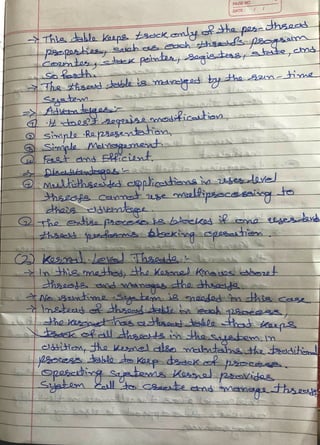 PAGE NO.
DATE / /
→ This table keeps track only of the per-thread
properties, such as each thread's program
Counter, stack pointer, registers, state, and
So forth.
→ The thread table is managed by the run-time
System.
⇒ Advantages:-
① It doesn't require modification.
② Simple Representation,
③ Simple Management
④ Fast and Efficient.
⇒ Disadvantages:-
① Multithreaded applications in user-level
threads cannot use multiprocessing to
their advantage
② The entire process is blocked if one user-level
thread performs blocking operation.
(2) Kernel-Level Threads:-
→ In this method, the Kernel knows about
threads and manages the threads
→ No runtime System is needed in this case
→ Instead of thread table in each process,
the kernel has a thread table that keeps
track of all threads in the system. In
addition, the Kernel also maintains the traditional
process table to keep track of process.
Operating Systems Kernel provides
System call to create and manage threads